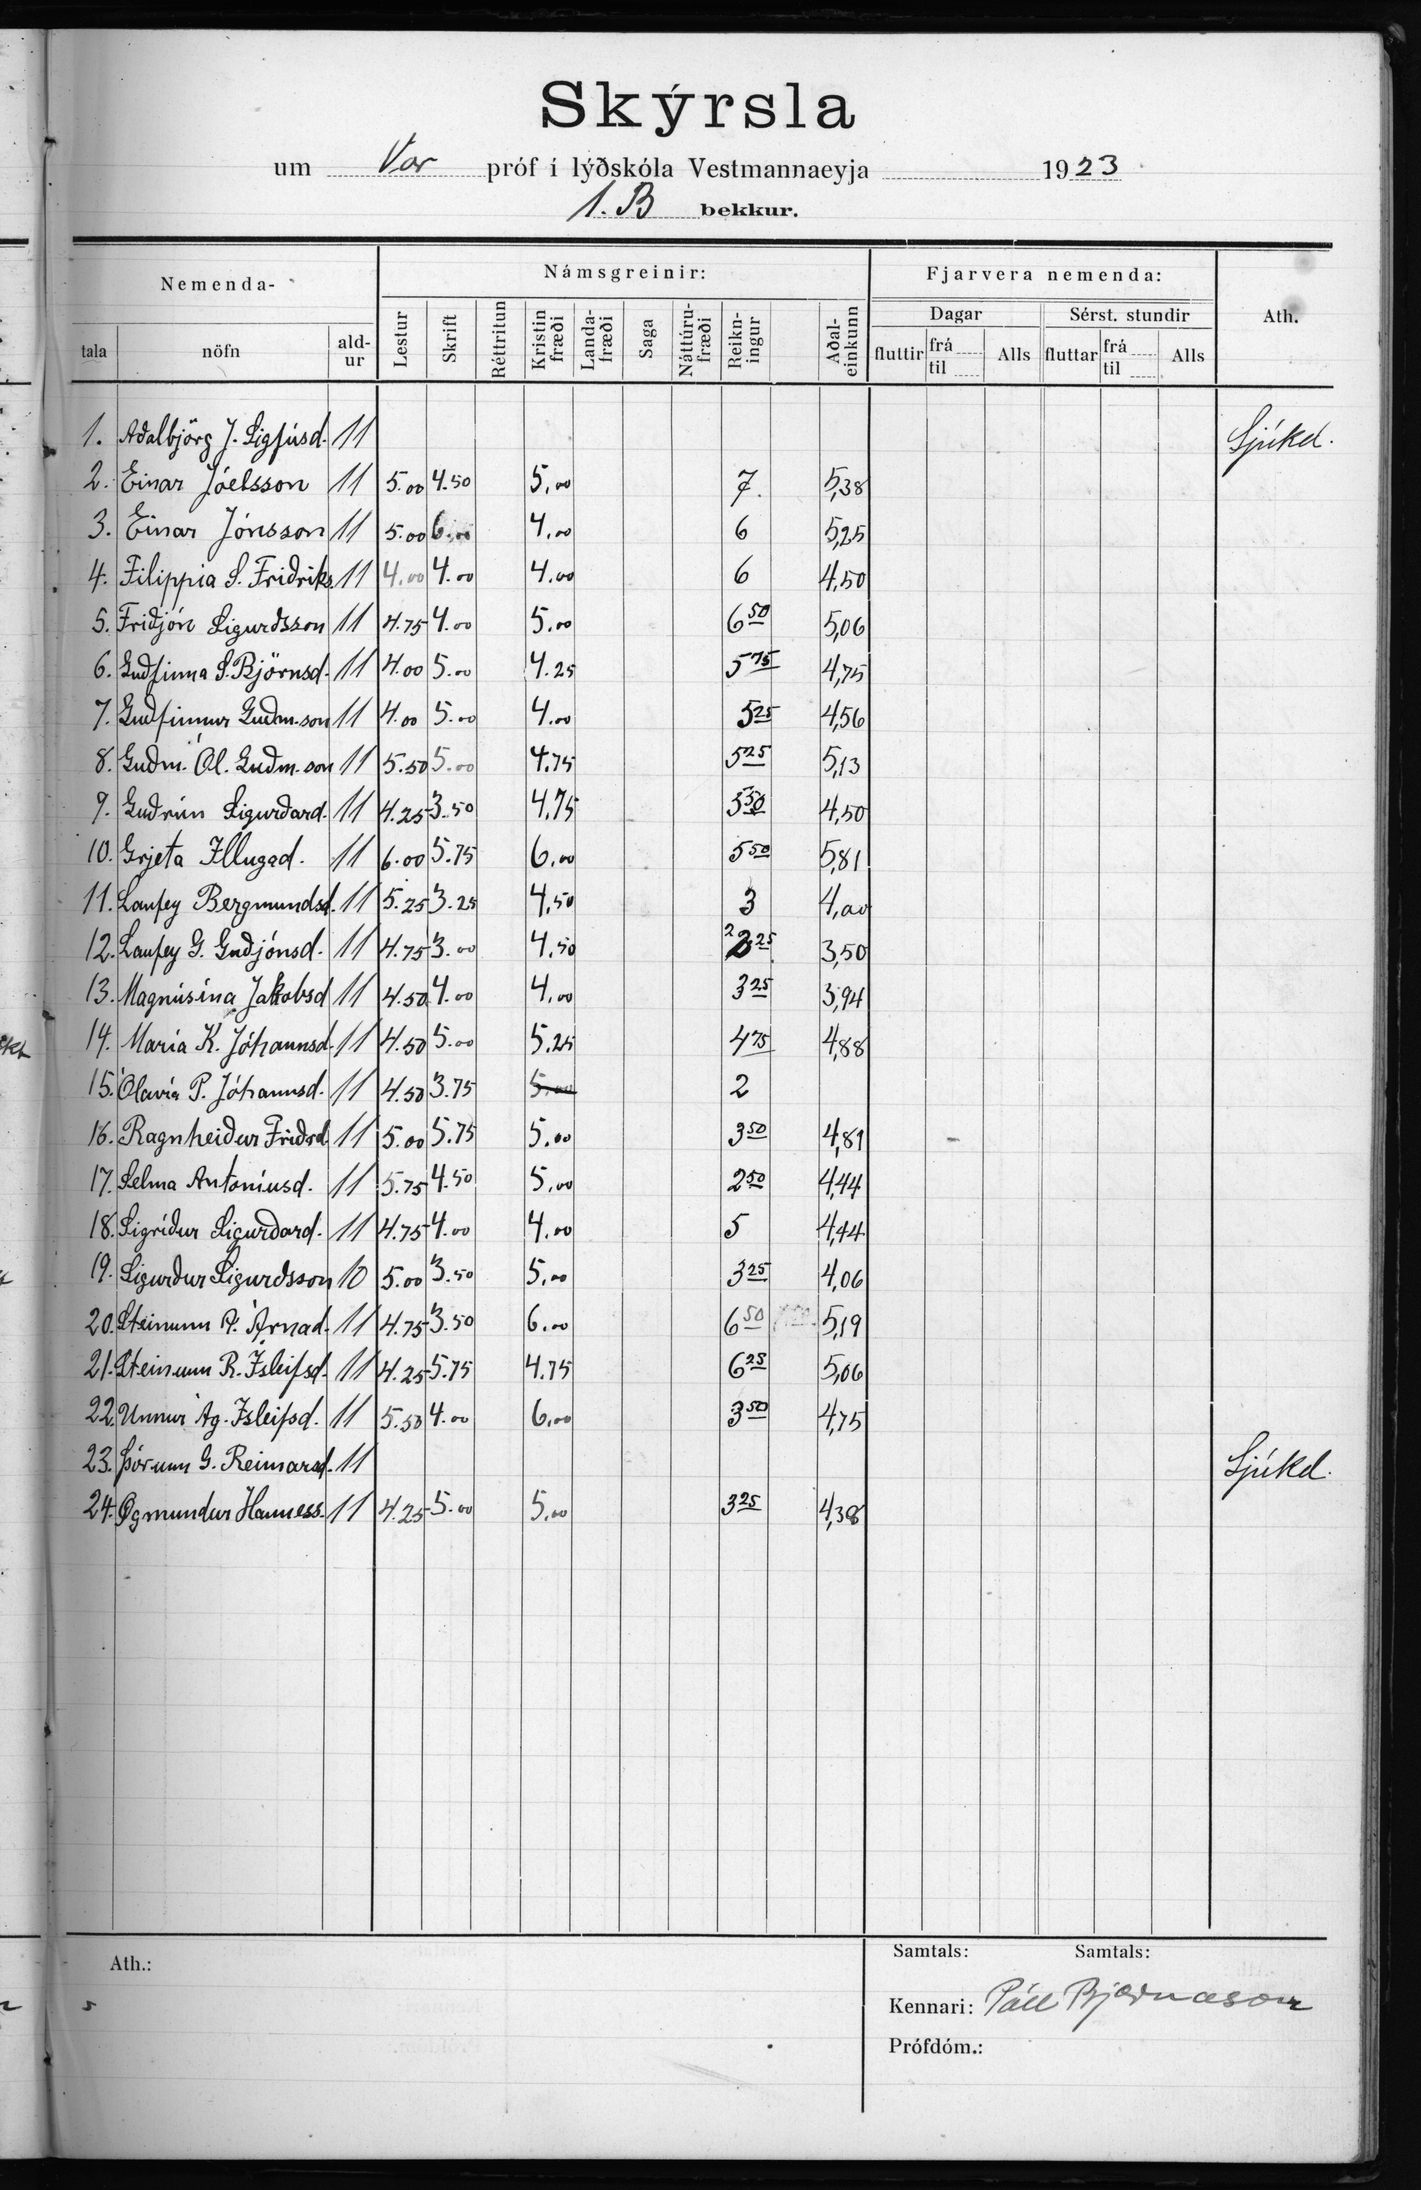 Skýrsla
um Vor próf í lýðskóla Vestmannaeyja 1923
1. B bekkur.
Nemenda- Námsgreinir: Fjarvera nemenda: Ath.
tala nöfn ald-ur Lestur Skrift Réttritun Kristin fræði Landa-fræði Saga Náttúru-fræði Reikn-ingur Aðal-einkunn Dagar Sérst. stundir
fluttir frá til Alls fluttar frá til Alls
1. Aðalbjörg J. Sigfúsd. 11 Sjúkd.
2. Einar Jóelsson 11 5.00 4.50 5.00 7. 5,38
3. Einar Jónsson 11 5.00 6.00 4.00 6 5,25
4. Filippia S. Friðriks. 11 4.00 4.00 4.00 6 4,50
5. Friðjón Sigurðsson 11 4.75 4.00 5.00 6 50 5,06
6. Guðfinna S. Björnsd. 11 4.00 5.00 4.25 5 75 4,75
7. Guðfinnur Guðm.son 11 4.00 5.00 4.00 5 25 4,56
8. Guðm. Ól. Guðm.son 11 5.50 5.00 4.75 5 25 5,13
9. Guðrún Sigurðard. 11 4.25 3.50 4.75 5 50 4,50
10. Grjeta Illugad. 11 6.00 5.75 6.00 5 50 5,81
11. Laufey Bergmundsd. 11 5.25 3.25 4.50 3 4,00
12. Laufey G. Guðjónsd. 11 4.75 3.00 4.50 2 25 3,50
13. Magnúsína Jakobsd 11 4.50 4.00 4.00 3 25 3,94
14. María K. Jóhannsd. 11 4.50 5.00 5.25 4 75 4,88
15. Ólavía P. Jóhannsd. 11 4.50 3.75 5.00 2
16. Ragnheiður Friðrd. 11 5.00 5.75 5.00 3 50 4,81
17. Selma Antoníusd. 11 5.75 4.50 5.00 2 50 4,44
18. Sigríður Sigurðard. 11 4.75 4.00 4.00 5 4,44
19. Sigurður Sigurðsson 10 5.00 3.50 5.00 3 25 4,06
20. Steinunn Á. Árnad. 11 4.75 3.50 6.00 6 50 5,19
21. Steinunn R. Ísleifsd. 11 4.25 5.75 4.75 6 25 5,06
22. Unnur Ág. Ísleifsd. 11 5.50 4.00 6.00 3 50 4,75
23. Þórunn G. Reimarsd. 11 Sjúkd.
24. Ögmundur Hanness. 11 4.25 5.00 5.00 3 25 4,38
Ath.: Samtals: Samtals:
Kennari: Páll Bjarnason
Prófdóm.: